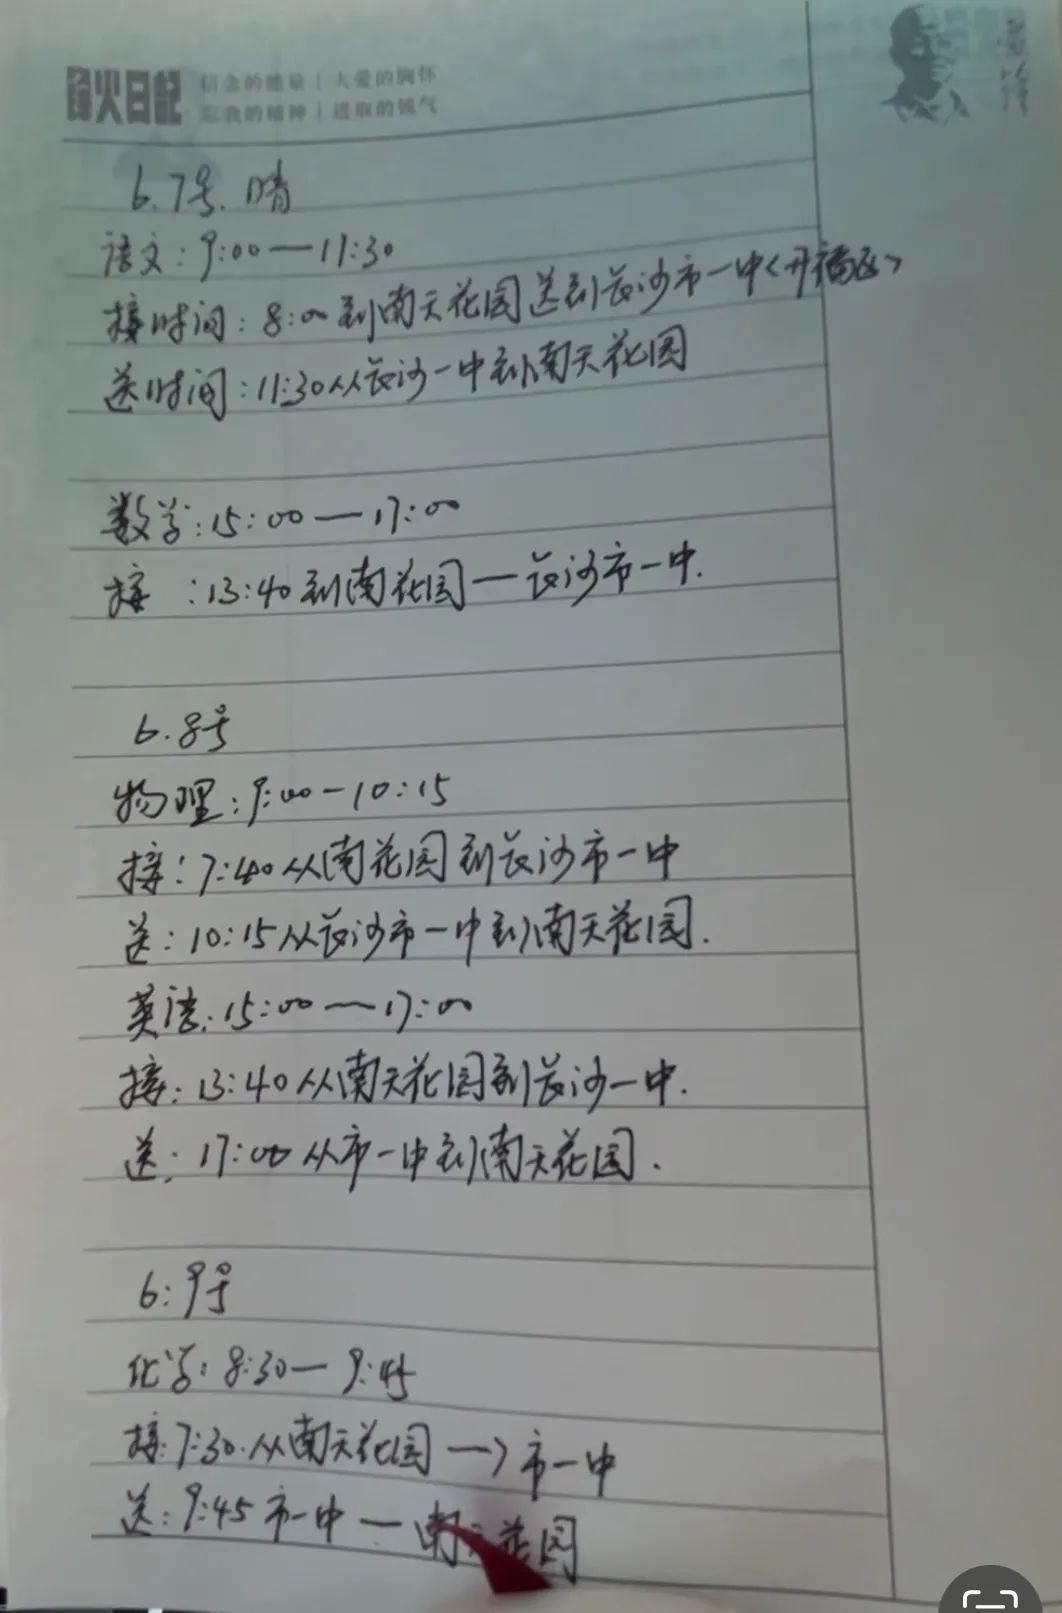 烽火日記
信念的能量 | 大爱的胸怀
忘我的精神 | 进取的锐气
6.7号. 晴
语文: 9:00—11:30
接时间: 8:00到南天花园送到长沙市一中<开福区>
送时间: 11:30从长沙一中到南天花园
数学: 15:00—17:00
接 : 13:40到南花园—长沙市一中.
6.8号
物理: 9:00-10:15
接: 7:40从南花园到长沙市一中
送: 10:15从长沙市一中到南天花园.
英语: 15:00—17:00
接: 13:40从南天花园到长沙一中.
送: 17:00从市一中到南天花园.
6:9号
化学: 8:30—9:45
接: 7:30.从南天花园→市一中
送: 9:45市一中—南天花园